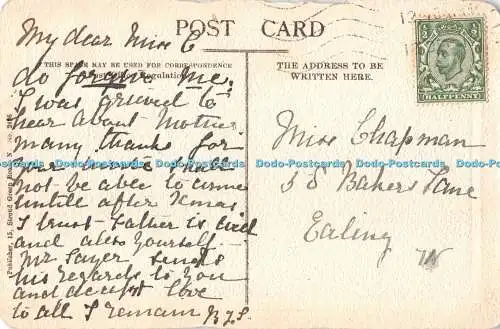 POST CARD
THIS SPACE MAY BE USED FOR CORRESPONDENCE
THE ADDRESS TO BE
WRITTEN HERE.
HALFPENNY
My dear Miss C
do forgive me.
I was grieved to
hear about Mother
many thanks for
your
not be able to come
untill after Xmas
I trust Father is well
and also yourself
Mr Sayer sends
his regards to you
and accept love
to all I remain
Miss Chapman
Bakers Lane
Ealing
W
Dodo-Postcards Dodo-Postcards Dodo-Postcards Dodo-Postcards
Publisher, 15, Stroud Green Road, No.